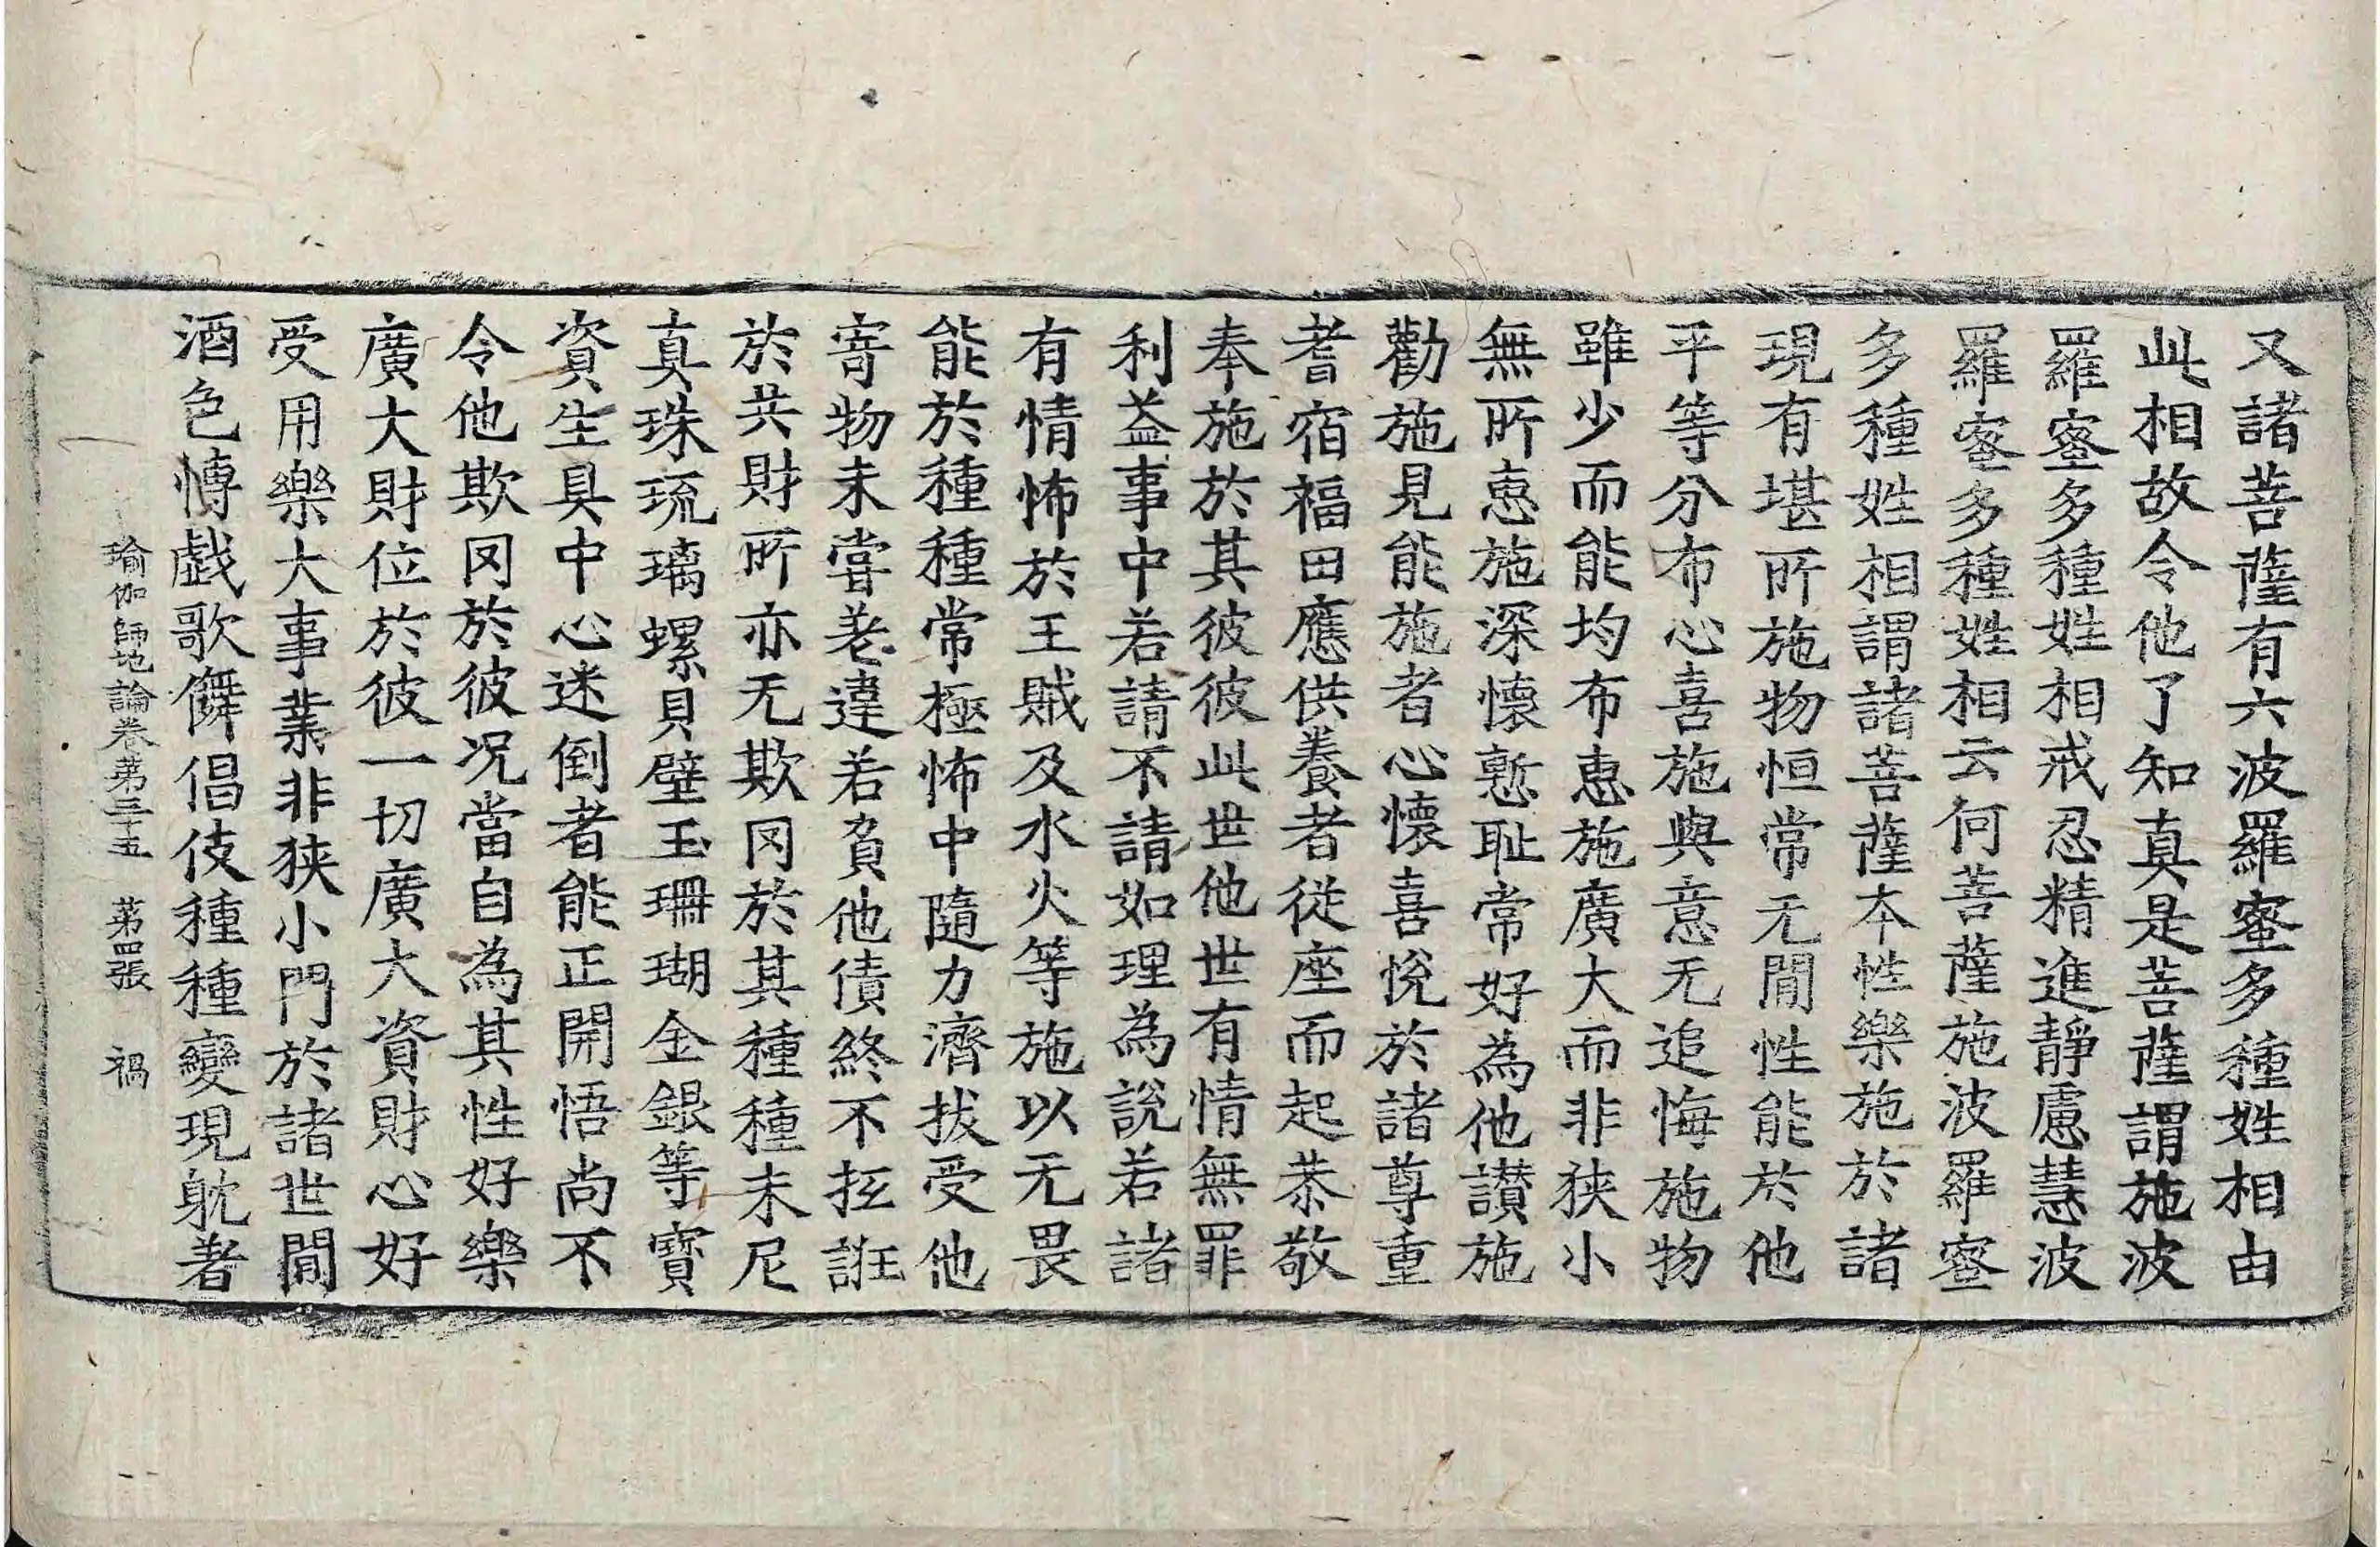 又諸菩薩有六波羅蜜多種姓相由
此相故令他了知真是菩薩謂施波
羅蜜多種姓相戒忍精進靜慮慧波
羅蜜多種姓相云何菩薩施波羅蜜
多種姓相謂諸菩薩本性樂施於諸
現有堪所施物恒常无閒性能於他
平等分布心喜施與意无追悔施物
雖少而能均布惠施廣大而非狹小
無所惠施深懷慙耻常好為他讃施
勸施見能施者心懷喜悅於諸尊重
耆宿福田應供養者從座而起恭敬
奉施於其彼彼此世他世有情無罪
利益事中若請不請如理為說若諸
有情怖於王賊及水火等施以无畏
能於種種常極怖中隨力濟拔受他
寄物未嘗差違若負他債終不抂誑
於共財所亦无欺罔於其種種末尼
真珠琉璃螺貝璧玉珊瑚金銀等寶
資生具中心迷倒者能正開悟尚不
令他欺罔於彼況當自為其性好樂
廣大財位於彼一切廣大資財心好
受用樂大事業非狹小門於諸世閒
酒色博戲歌儛倡伎種種變現躭著
瑜伽師地論卷第三十五 第四張 禍